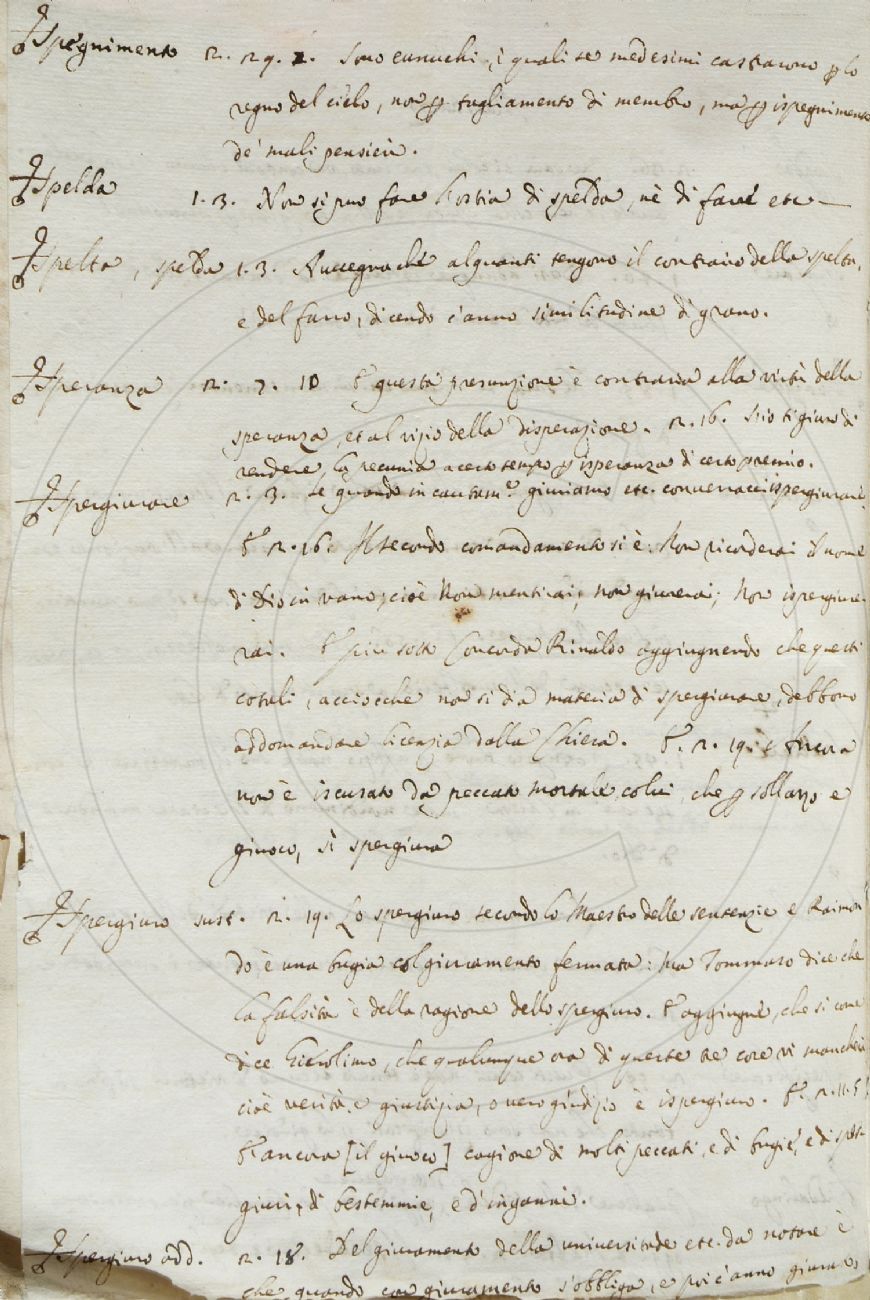 Spegnimento R. 29. 2. Sono eunuchi, i quali se medesimi castrarono p lo
regno del cielo, non p tagliamento di membro, ma p ispegnimento
de' mali pensieri.
Spelda 1. 3. Non si puo fare hostia di spelda, nè di farre etc —
Spelta, spelda 1. 3. Avvegna che alquanti tengono il contrario della spelta,
e del farro, dicendo c'anno similitudine di grano.
Speranza R. 7. 10 E questa presunzione è contraria alla virtù della
speranza, et al vizio della disperazione. R. 16. S'io ti giuro di
rendere la pecunia a certo tempo p isperanza di certo premio.
Spergiurare R. 3. Se quando incautam.e giuriamo etc. converracci ispergiurare,
E R. 16. Il secondo comandamento si è: Non ricorderai il nome
di Dio in vano; cioè Non mentirai; non giurerai; Non ispergiure-
rai. E piu sotto Concorda Rinaldo aggiugnendo che questi
cotali, acciocche non si dia materia di spergiurare, debbono
addomandare licenzia dalla Chiesa. E. R. 19. Ancora
non è iscusato da peccato mortale colui, che p sollazzo e
giuoco, si spergiura
Spergiuro sust. R. 19. Lo spergiuro secondo lo Maestro delle sentenzie e Raimon
do, è una bugia col giuramento fermata: Ma Tommaso dice che
la falsità è della ragione dello spergiuro. E aggiugne, che si come
dice Gierolimo, che qualunque ora di queste tre cose vi mancherà
cioè verità e giustizia, o vero giudizio è ispergiuro. E. R. 11.
E ancora [il giuoco] cagione di molti peccati, e di bugie, e di sper-
giuri, di bestemmie, e d'inganni.
Spergiuro add. R. 18. Del giuramento della universitade etc. da notare è
che quando con giuramento s'obbliga, e poi c'anno giurato